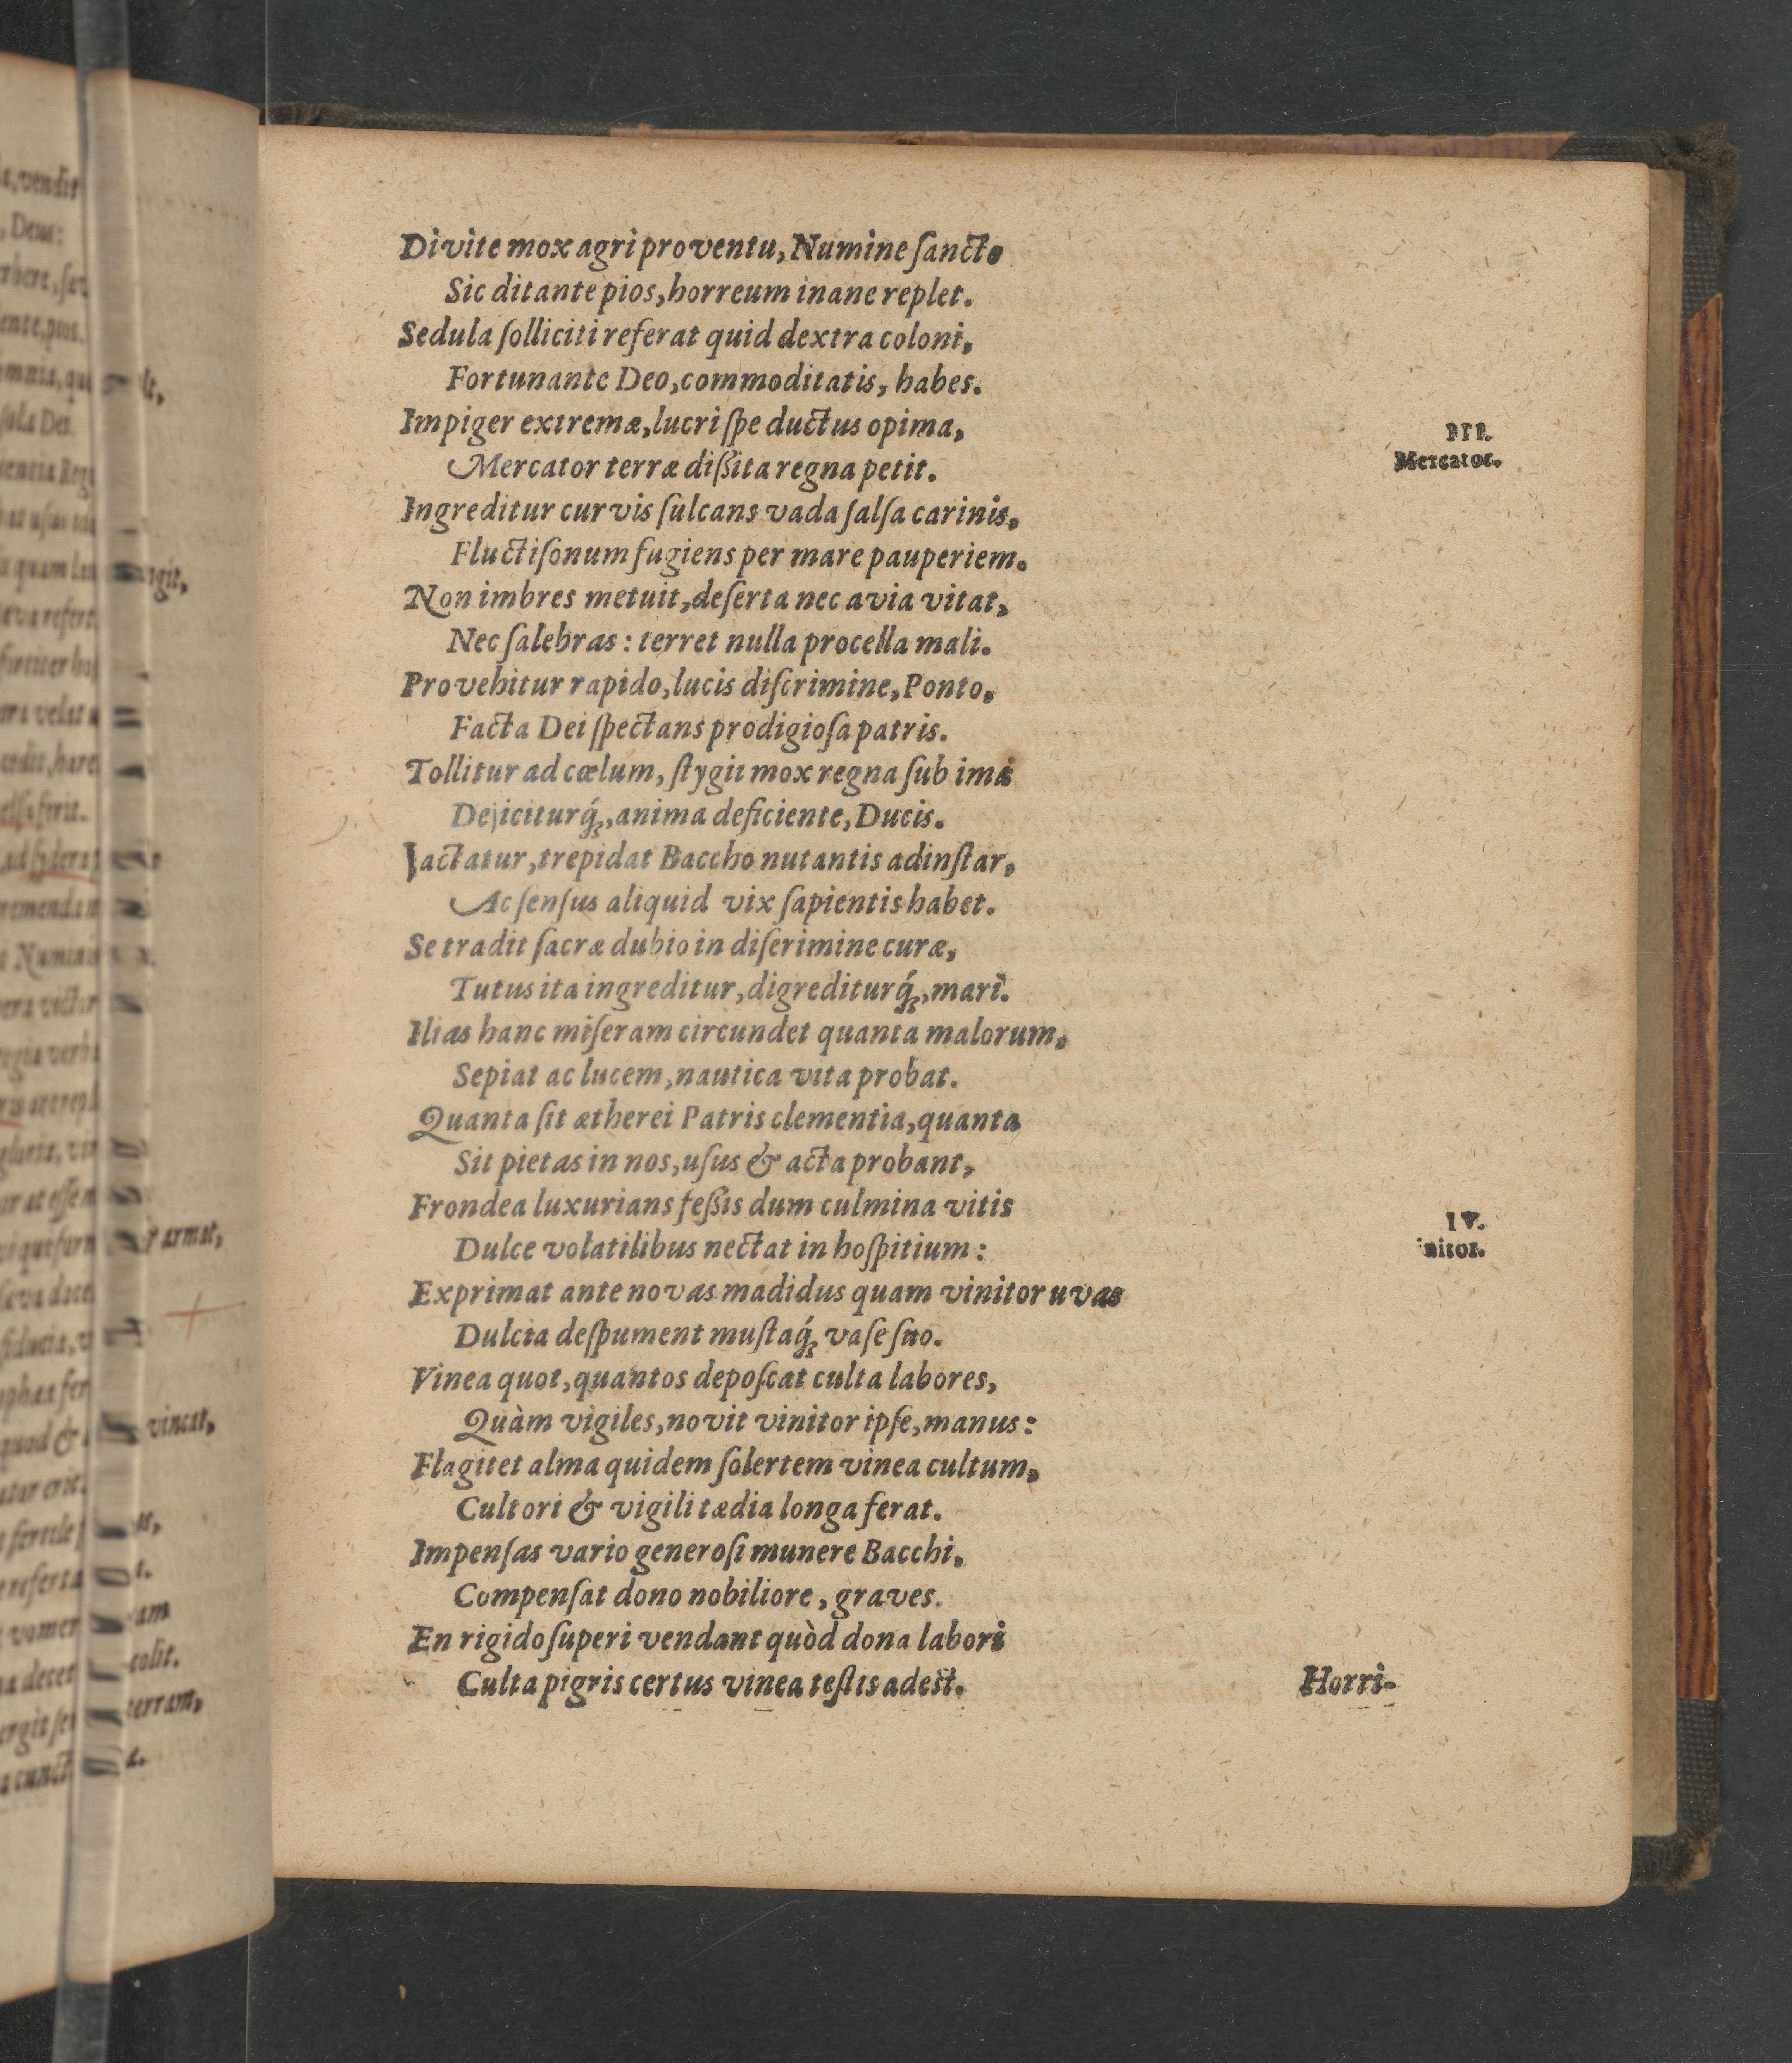 Divite mox agri proventu, Numine ſancto
Sic ditante pios, horreum inane replet.
Sedula ſolliciti referat quid dextra coloni,
Fortunante Deo, commoditatis, habes.
Impiger extremæ, lucri ſpe ductus opima,
III.
Mercator terræ dißita regna petit.
Mercator.
Ingreditur curvis ſulcans vada ſalſa carinis,
Fluctiſonum fugiens per mare pauperiem.
Non imbres metuit, deſerta nec avia vitat,
Nec ſalebras: terret nulla procella mali.
Provehitur rapido, lucis diſcrimine, Ponto,
Facta Dei ſpectans prodigioſa patris.
Tollitur ad cœlum, ſtygii mox regna ſub ima
Dejiciturq́ꝫ, anima deficiente, Ducis.
Jactatur, trepidat Baccho nutantis adinſtar,
Ac ſenſus aliquid vix ſapientis habet.
Se tradit ſacræ dubio in diſcrimine curæ,
Tutus ita ingreditur, digrediturq́ꝫ, mari.
Ilias hanc miſeram circundet quanta malorum,
Sepiat ac lucem, nautica vita probat.
Quanta ſit ætherei Patris clementia, quanta
Sit pietas in nos, uſus & acta probant,
Frondea luxurians feßis dum culmina vitis
IV.
Dulce volatilibus nectat in hoſpitium:
nitor.
Exprimat ante novas madidus quam vinitor uvas
Dulcia deſpument muſtaq́ꝫ vaſe ſuo.
Vinea quot, quantos depoſcat culta labores,
Quàm vigiles, novit vinitor ipſe, manus:
Flagitet alma quidem ſolertem vinea cultum,
Cultori & vigili tædia longa ferat.
Impenſas vario generoſi munere Bacchi,
Compenſat dono nobiliore, graves.
En rigido ſuperi vendant quòd dona labori
Culta pigris certus vinea teſtis adest.
Horri-